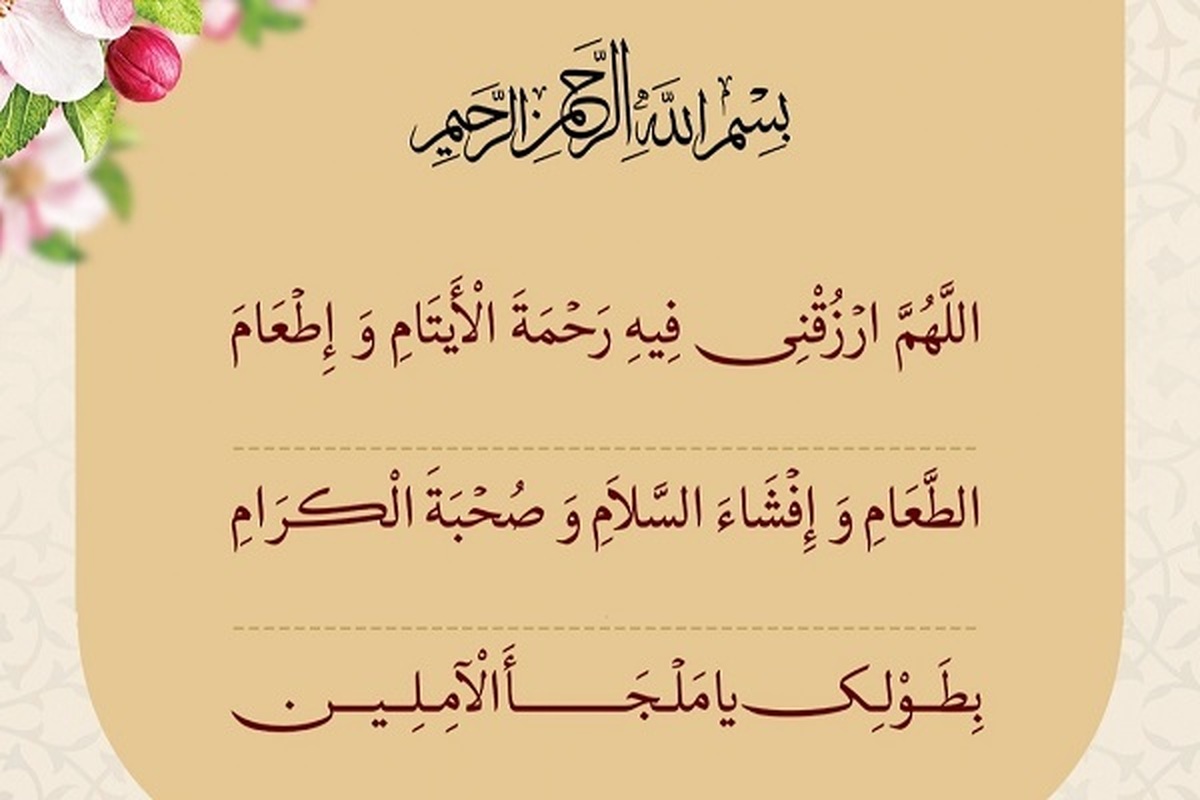 بِسْمِ اللَّهِ الرَّحْمنِ الرَّحِيمِ
اللَّهُمَّ ارْزُقْنِی فِیهِ رَحْمَةَ الْأَیتَامِ وَ إِطْعَامَ
الطَّعَامِ وَ إِفْشَاءَ السَّلاَمِ وَ صُحْبَةَ الْکرَامِ
بِطَوْلِک یا مَلْجَأَ الْآمِلِین